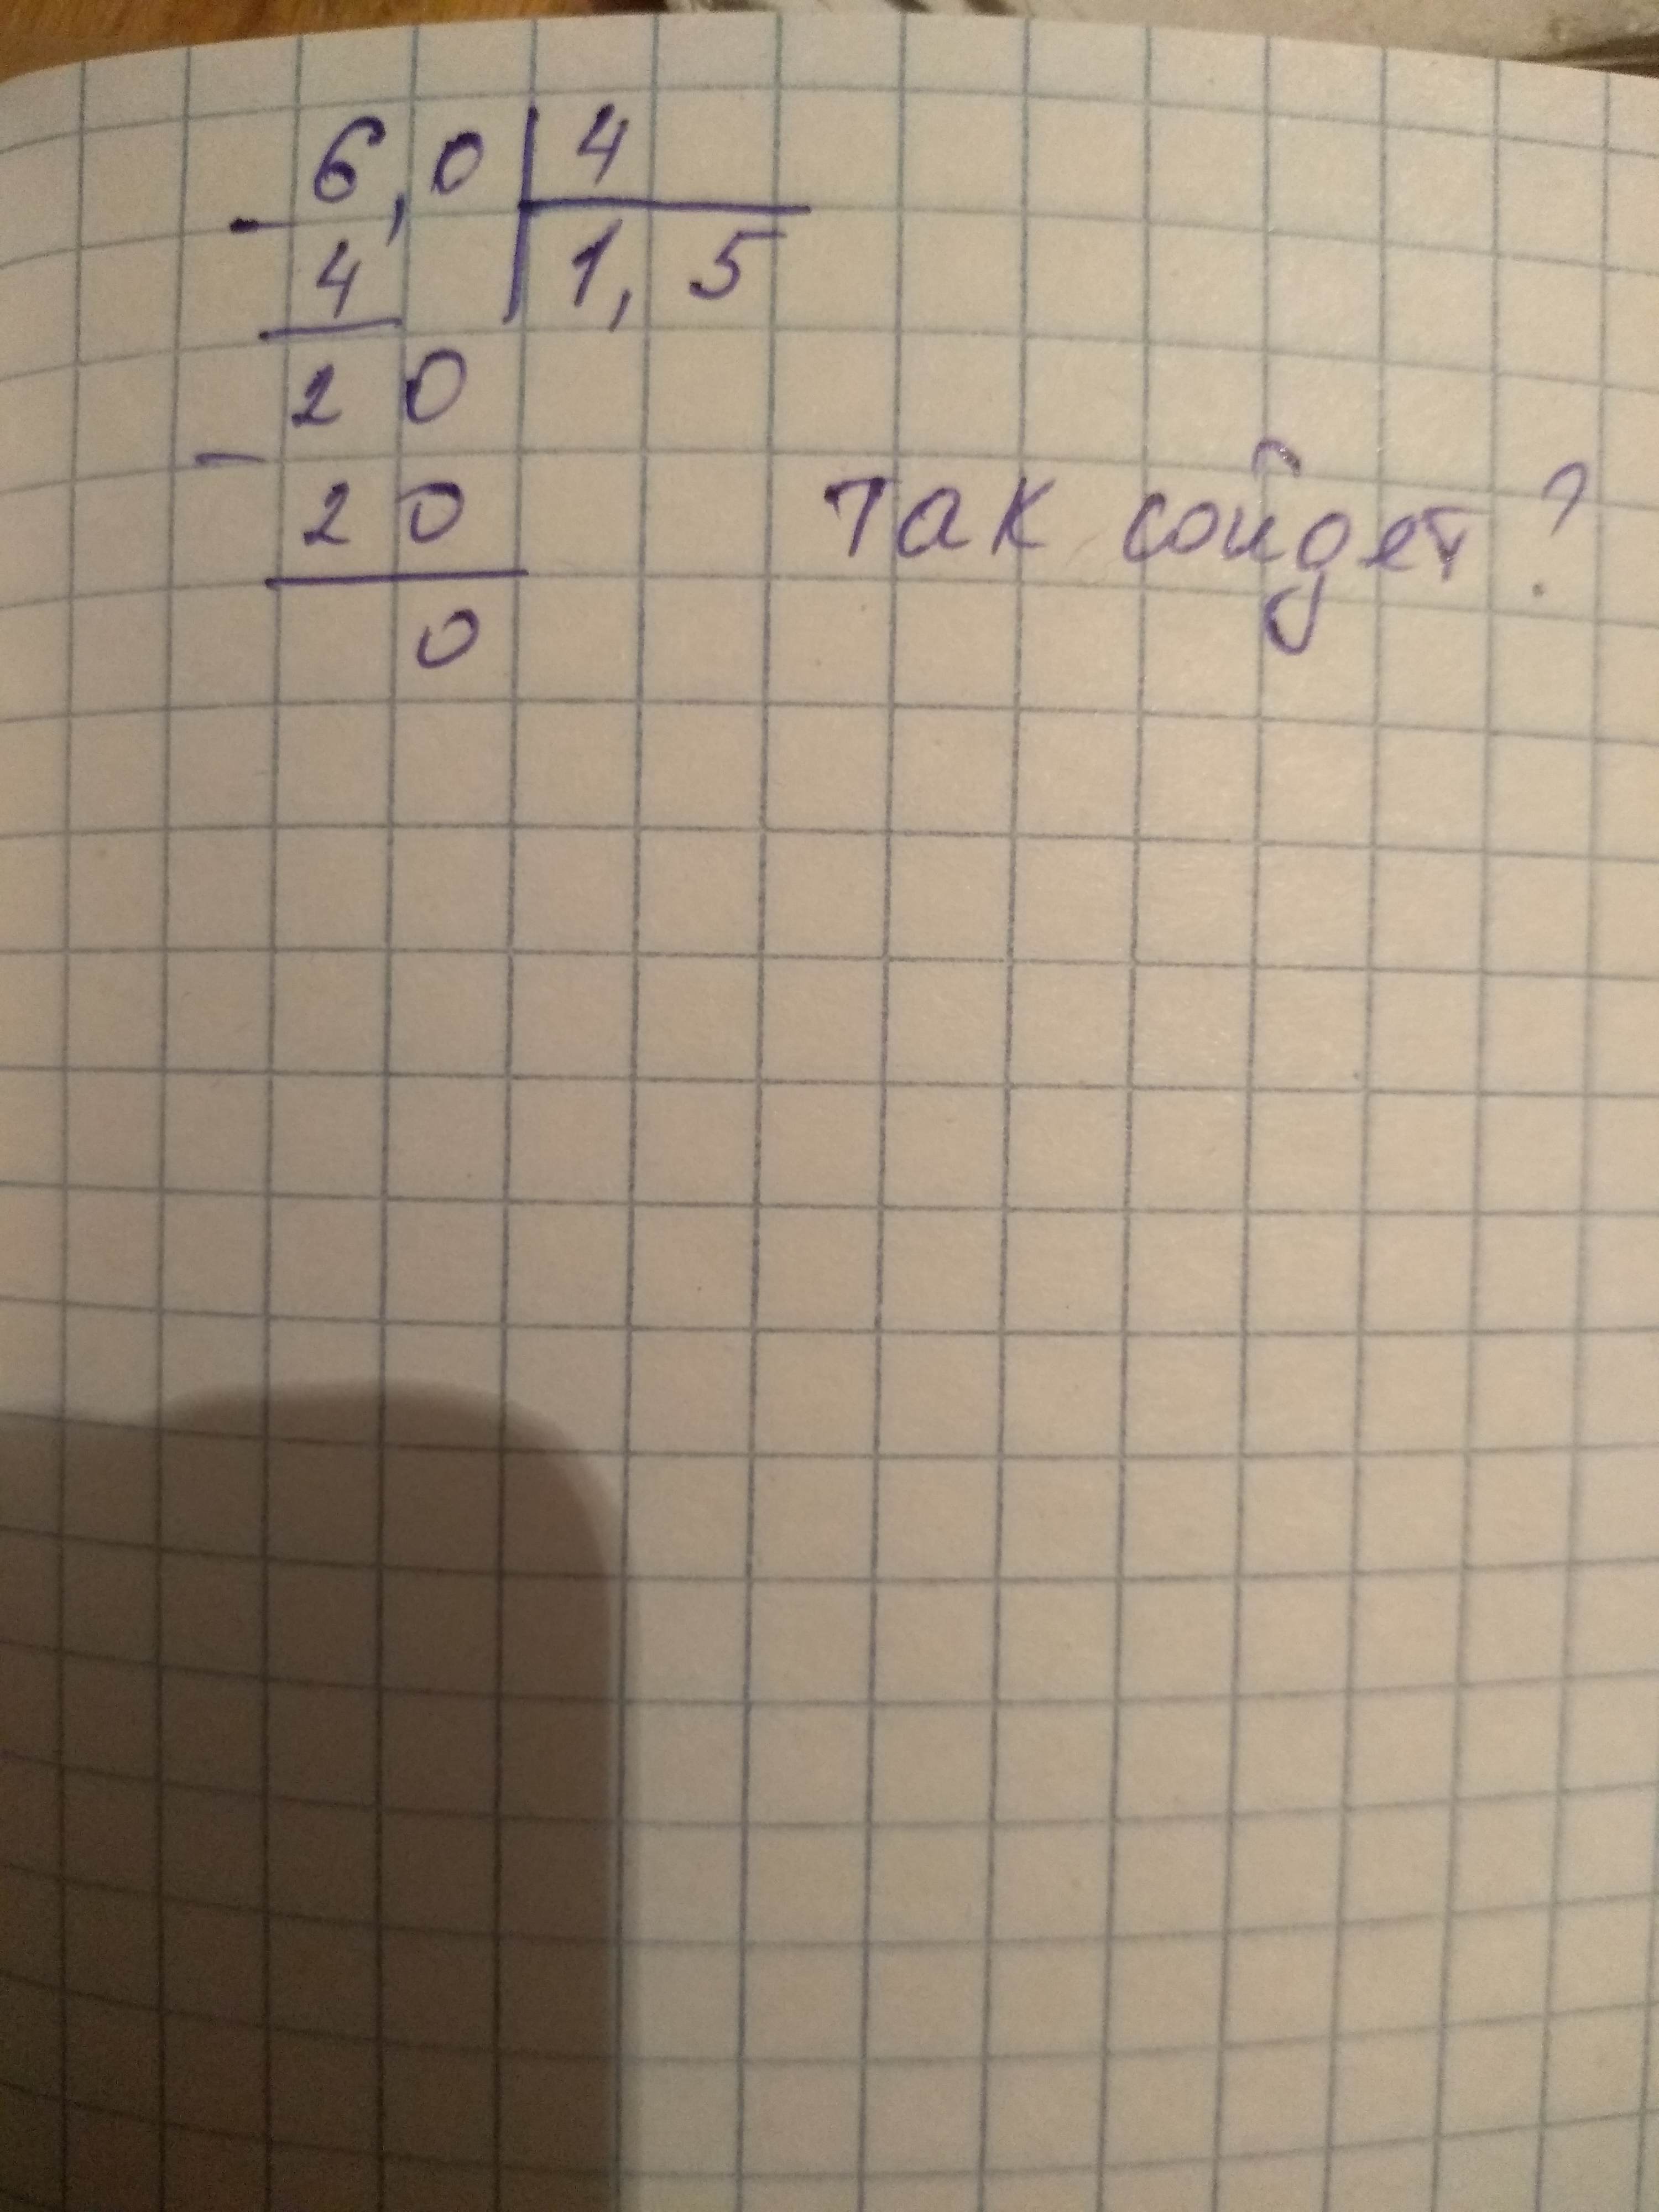 6,0 | 4
- 4 | 1,5
20
- 20
0
так сойдет?